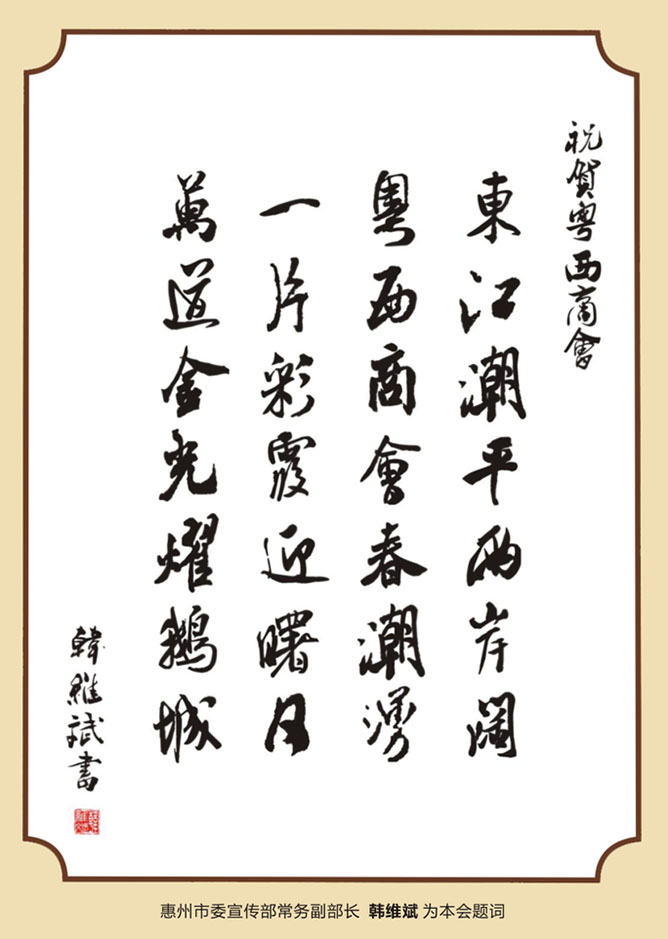 祝賀粤西商會
東江潮平两岸阔
粵西商會春潮湧
一片彩霞迎曙日
萬道金光耀鵝城
韓維斌書
惠州市委宣传部常务副部长 韩维斌 为本会题词